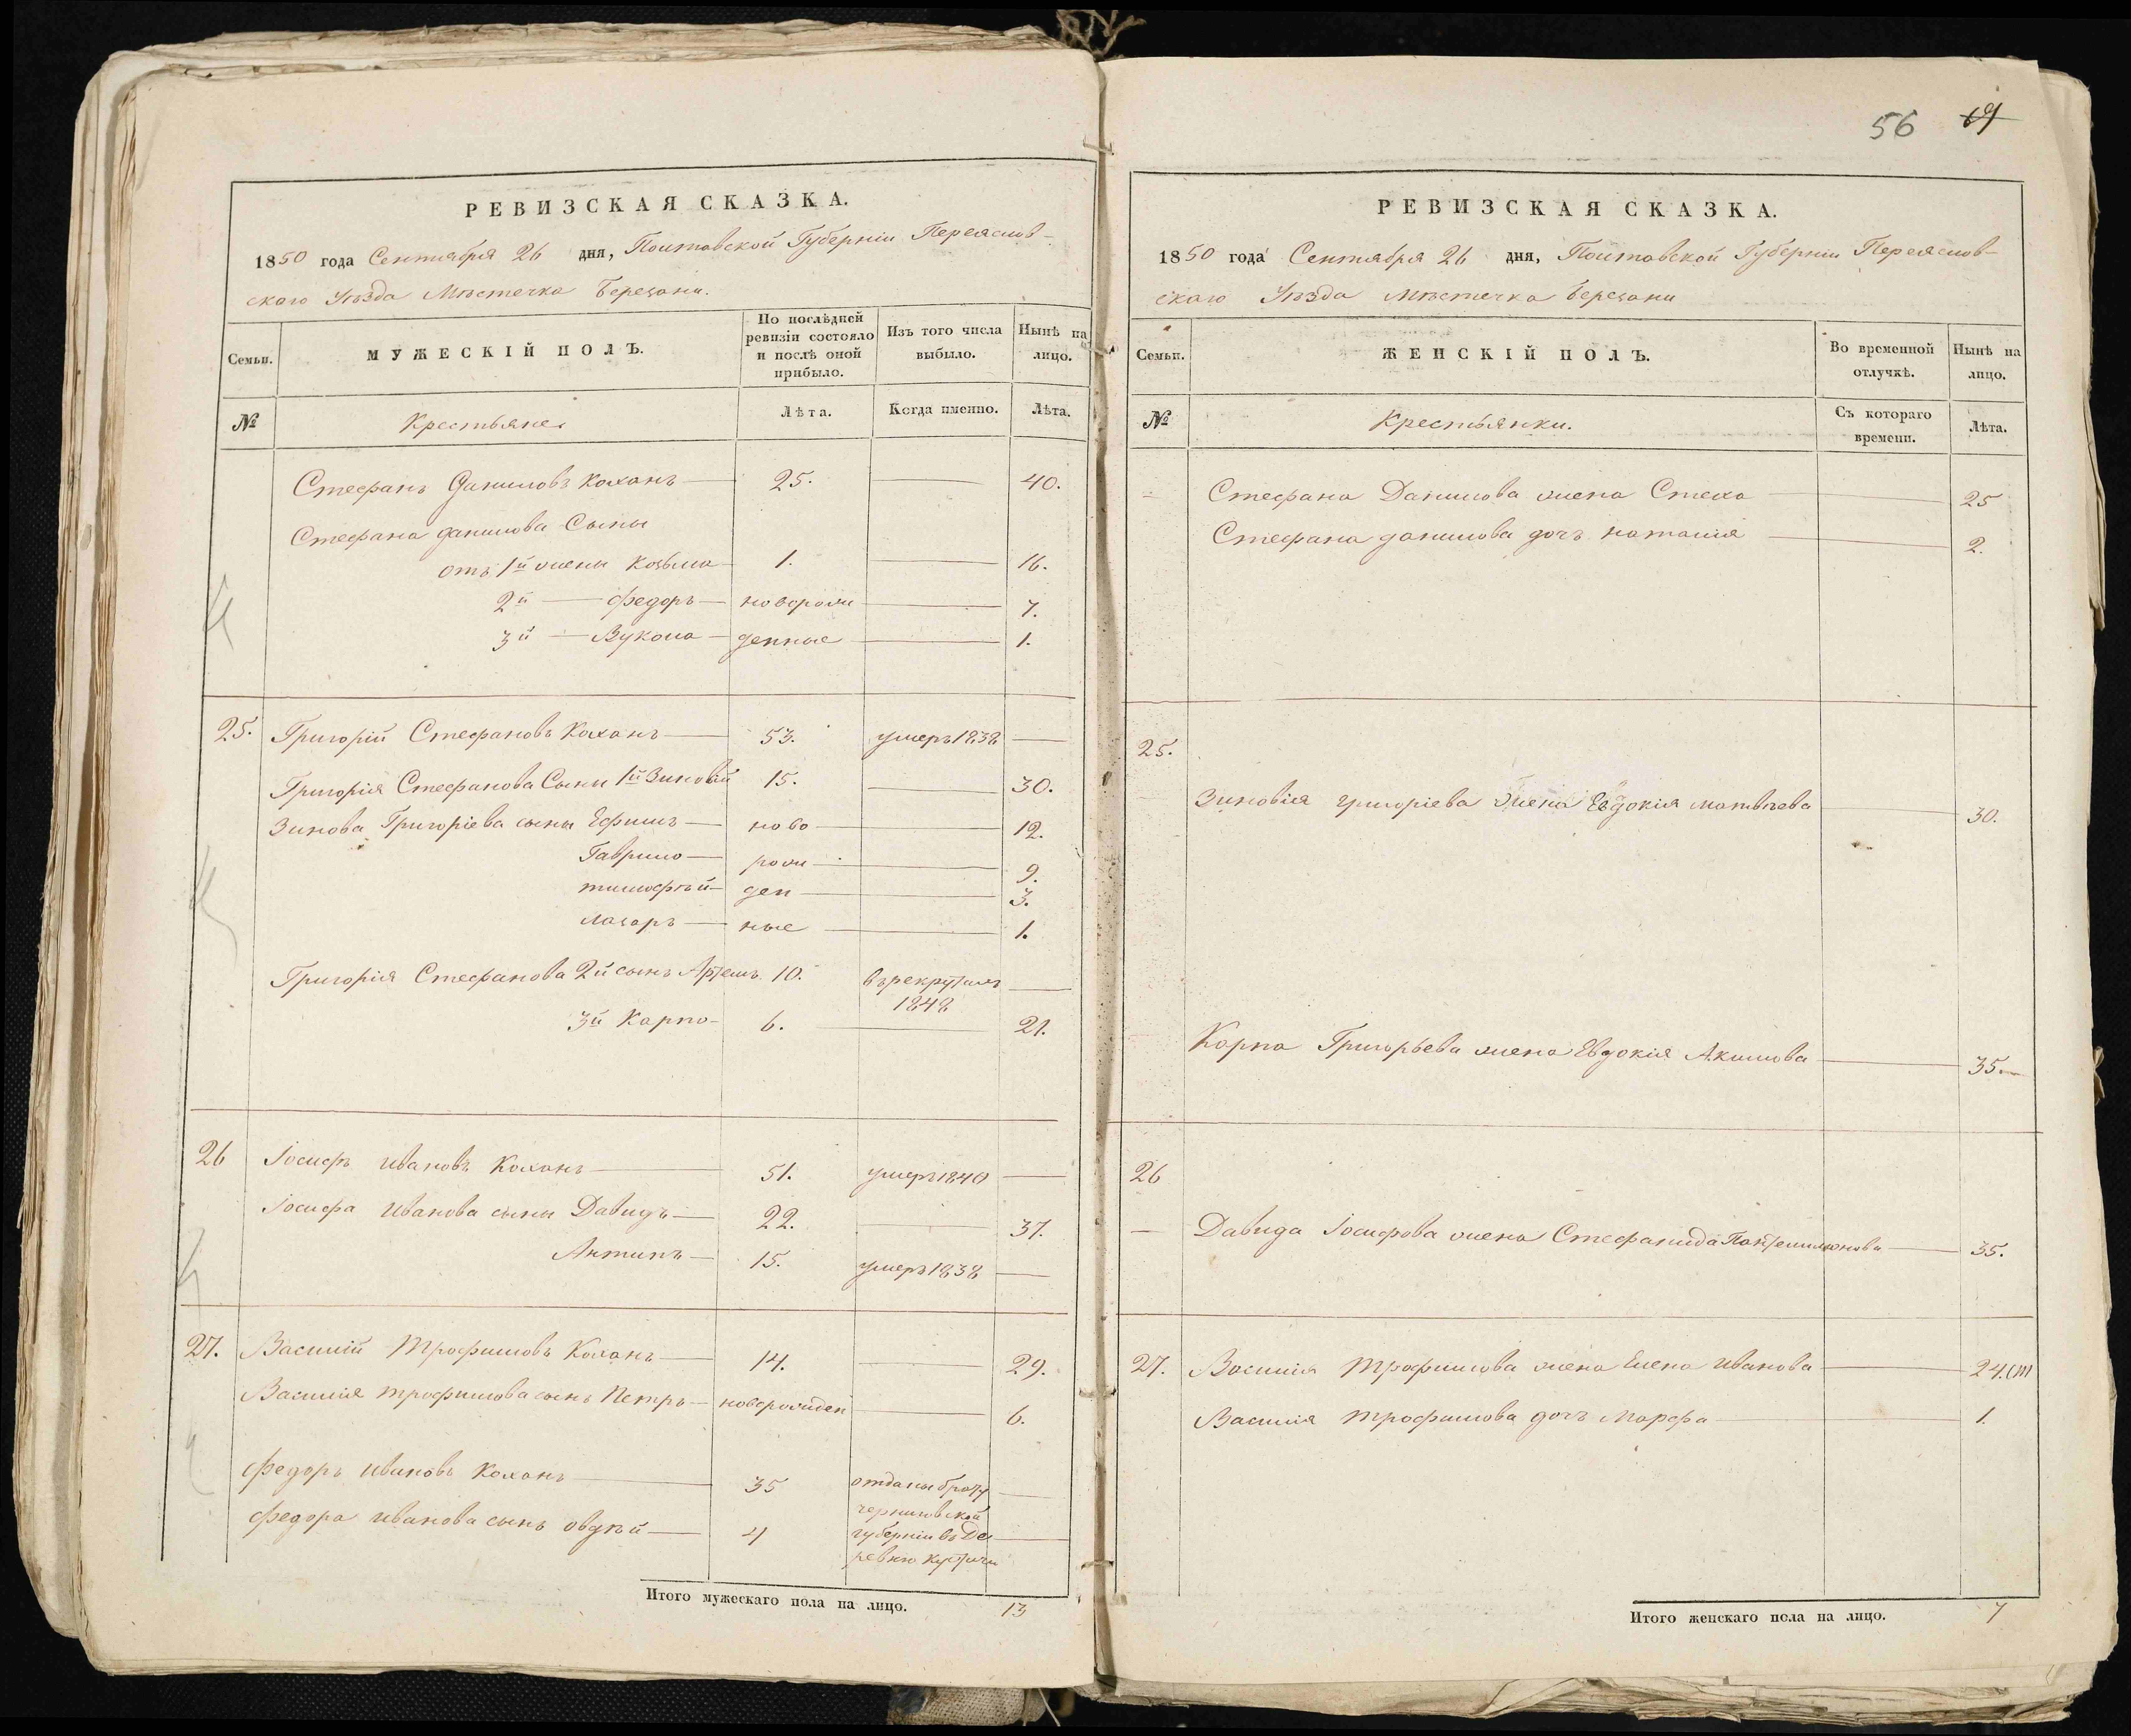 РЕВИЗСКАЯ СКАЗКА.
1850 года Сентября 26 дня, Полтавской Губерніи Переяслов-
скаго Уѣзда Мѣстечка Березани.
Семьи.
МУЖЕСКІЙ ПОЛЪ.
По послѣдней ревизіи состояло и послѣ оной прибыло.
Изъ того числа выбыло.
Нынѣ на лицо.
№ Крестьяне Лѣта. Когда именно. Лѣта.
Стефанъ Даниловъ Коханъ 25. 40.
Стефана Данилова Сыны
отъ 1й жены Козьма 1. 16.
2й — Федоръ — новорож 7.
3й — Вукола — денные 1.
25. Григорій Стефановъ Коханъ 53. умеръ 1838
Григорія Стефанова Сыны 1й Зиновій 15. 30.
Зинова Григоріева сыны Ефимъ — ново 12.
Гаврило — рож 9.
тимофѣй — ден 3.
лазаръ — ные 1.
Григорія Стефанова 2й сынъ Артемъ 10. въ рекрутахъ
1848
3й Карпо 6. 21.
26 Іосифъ Ивановъ Коханъ 51. умеръ 1840
Іосифа Иванова сыны Давидъ 22. 37.
Антипъ 15. умеръ 1838
27. Василій Трофимовъ Коханъ 14. 29.
Василія трофимова сынъ Петръ — новорожден 6.
Федоръ Ивановъ Коханъ 35 отданы брату
черниговской
Федора Иванова сынъ овдѣй 4 губерніи въ Де
ревню
Итого мужескаго пола на лицо. 13
56 69
РЕВИЗСКАЯ СКАЗКА.
1850 года Сентября 26 дня, Полтавской Губерніи Переяслов-
скаго Уѣзда Мѣстечка Березани
Семьи.
ЖЕНСКІЙ ПОЛЪ.
Во временной отлучкѣ.
Нынѣ на лицо.
№ Крестьянки. Съ котораго времени. Лѣта.
Стефана Данилова жена Стеха 25
Стефана данилова дочь наталія 2.
25.
Зиновія григоріева жена Евдокія матвѣева 30.
Карпа Григорьева жена Евдокія Акимова 35.
26
Давида Іосифова жена Стефанида Пантелимонова 35.
27. Василія Трофимова жена Елена Иванова 24.
Василія трофимова дочь Марфа 1.
Итого женскаго пола на лицо. 7